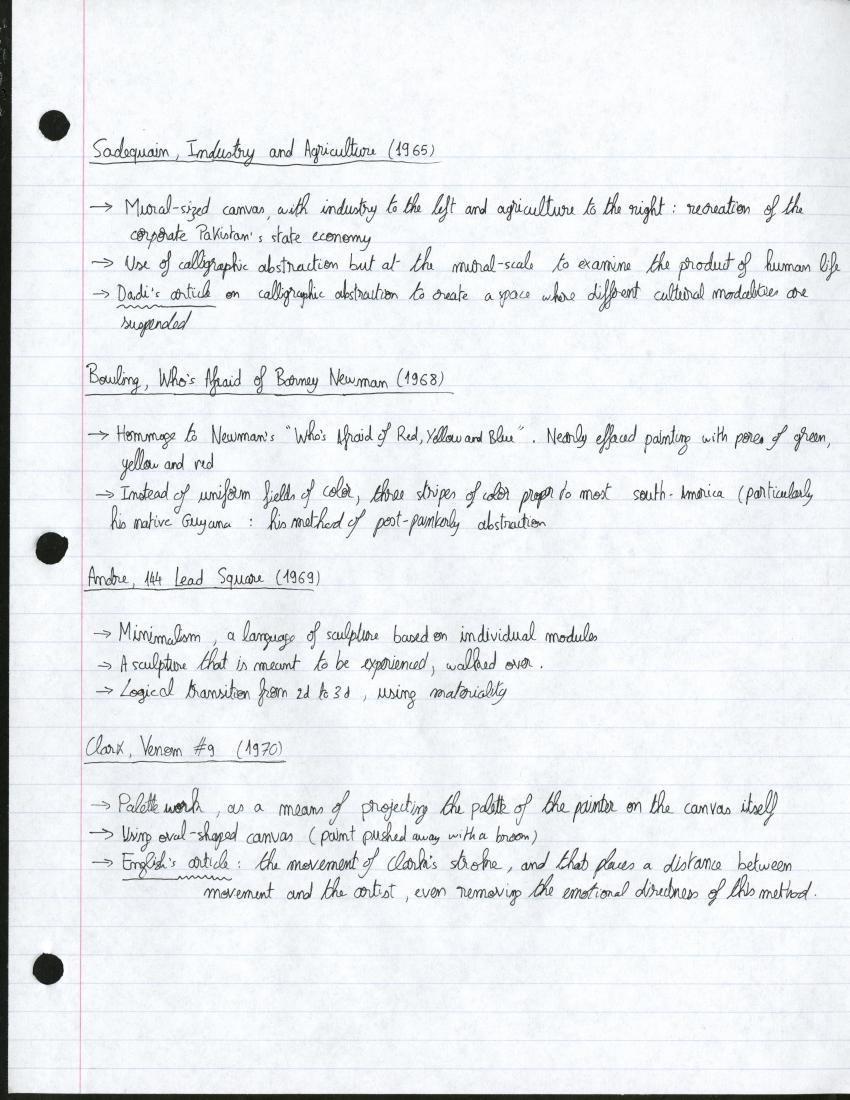 Sadequain, Industry and Agriculture (1965)
→ Mural-sized canvas, with industry to the left and agriculture to the right : recreation of the
corporate Pakistan's state economy
→ Use of calligraphic abstraction but at the mural-scale to examine the product of human life
→ Dadi's article on calligraphic abstraction to create a space where different cultural modalities are
suspended
Bowling, Who's Afraid of Barney Newman (1968)
→ Hommage to Newman's "Who's Afraid of Red, Yellow and Blue". Nearly effaced painting with pores of green,
yellow and red
→ Instead of uniform fields of color, three stripes of color proper to most south-America (particularly
his native Guyana : his method of post-painterly abstraction
Andre, 144 Lead Square (1969)
→ Minimalism, a language of sculpture based on individual modules
→ A sculpture that is meant to be experienced, walked over.
→ Logical transition from 2d to 3d, using materiality
Clark, Venom #9 (1970)
→ Palette work, as a means of projecting the palette of the painter on the canvas itself
→ Using oval-shaped canvas (paint pushed away with a broom)
→ English's article : the movement of Clark's stroke, and that places a distance between
movement and the artist, even removing the emotional directness of this method.